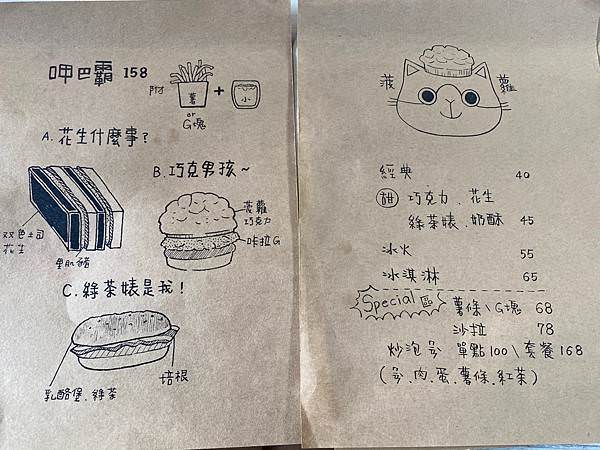 呷巴霸 158
附 薯 + 小
or
G塊
A. 花生什麼事?
双色土司
花生
里肌豬
B. 巧克男孩~
菠蘿
巧克力
咔拉G
C. 綠茶婊是我!
乳酪堡、綠茶
培根
菠 蘿
經典 40
甜 巧克力、花生
綠茶婊、奶酥 45
冰火 55
冰淇淋 65
Special區 薯條\G塊 68
沙拉 78
炒泡 單點100\套餐168
肉、蛋、薯條、紅茶)